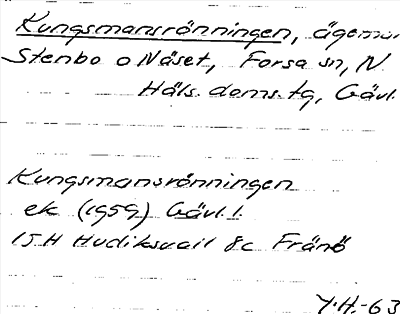 Kungsmansrönningen, ägomr.
Stenbo o Näset, Forsa sn, N
Häls. doms. tg, Gävl.
Kungsmansrönningen
ek (1959) Gävl. l.
15H Hudiksvall 8c Fränö
Y.H.-63